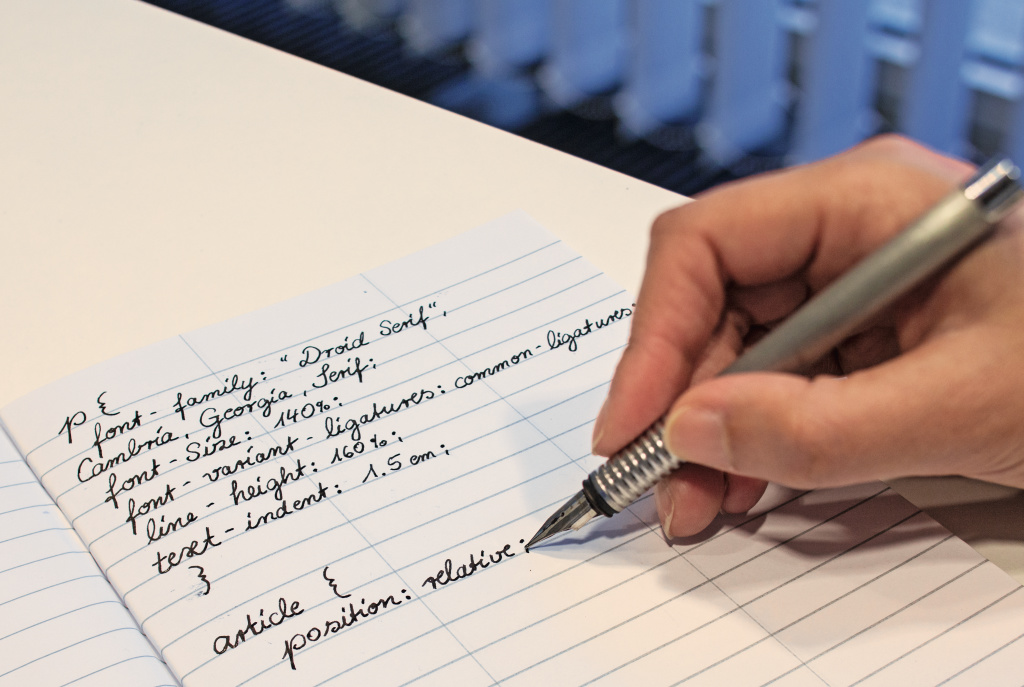 p {
font-family: "Droid Serif",
Cambria, Georgia, Serif;
font-Size: 140%;
font-variant-ligatures: common-ligatures;
line-height: 160%;
text-indent: 1.5 em;
}
article {
position: relative;